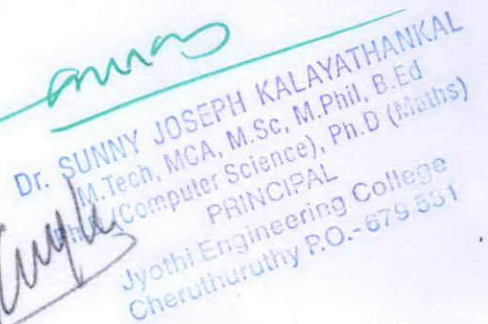 Dr. SUNNY JOSEPH KALAYATHANKAL
M.Tech, MCA, M.Sc, M.Phil, B.Ed
(Computer Science), Ph.D (Maths)
PRINCIPAL
Jyothi Engineering College
Cheruthuruthy P.O.-679 531